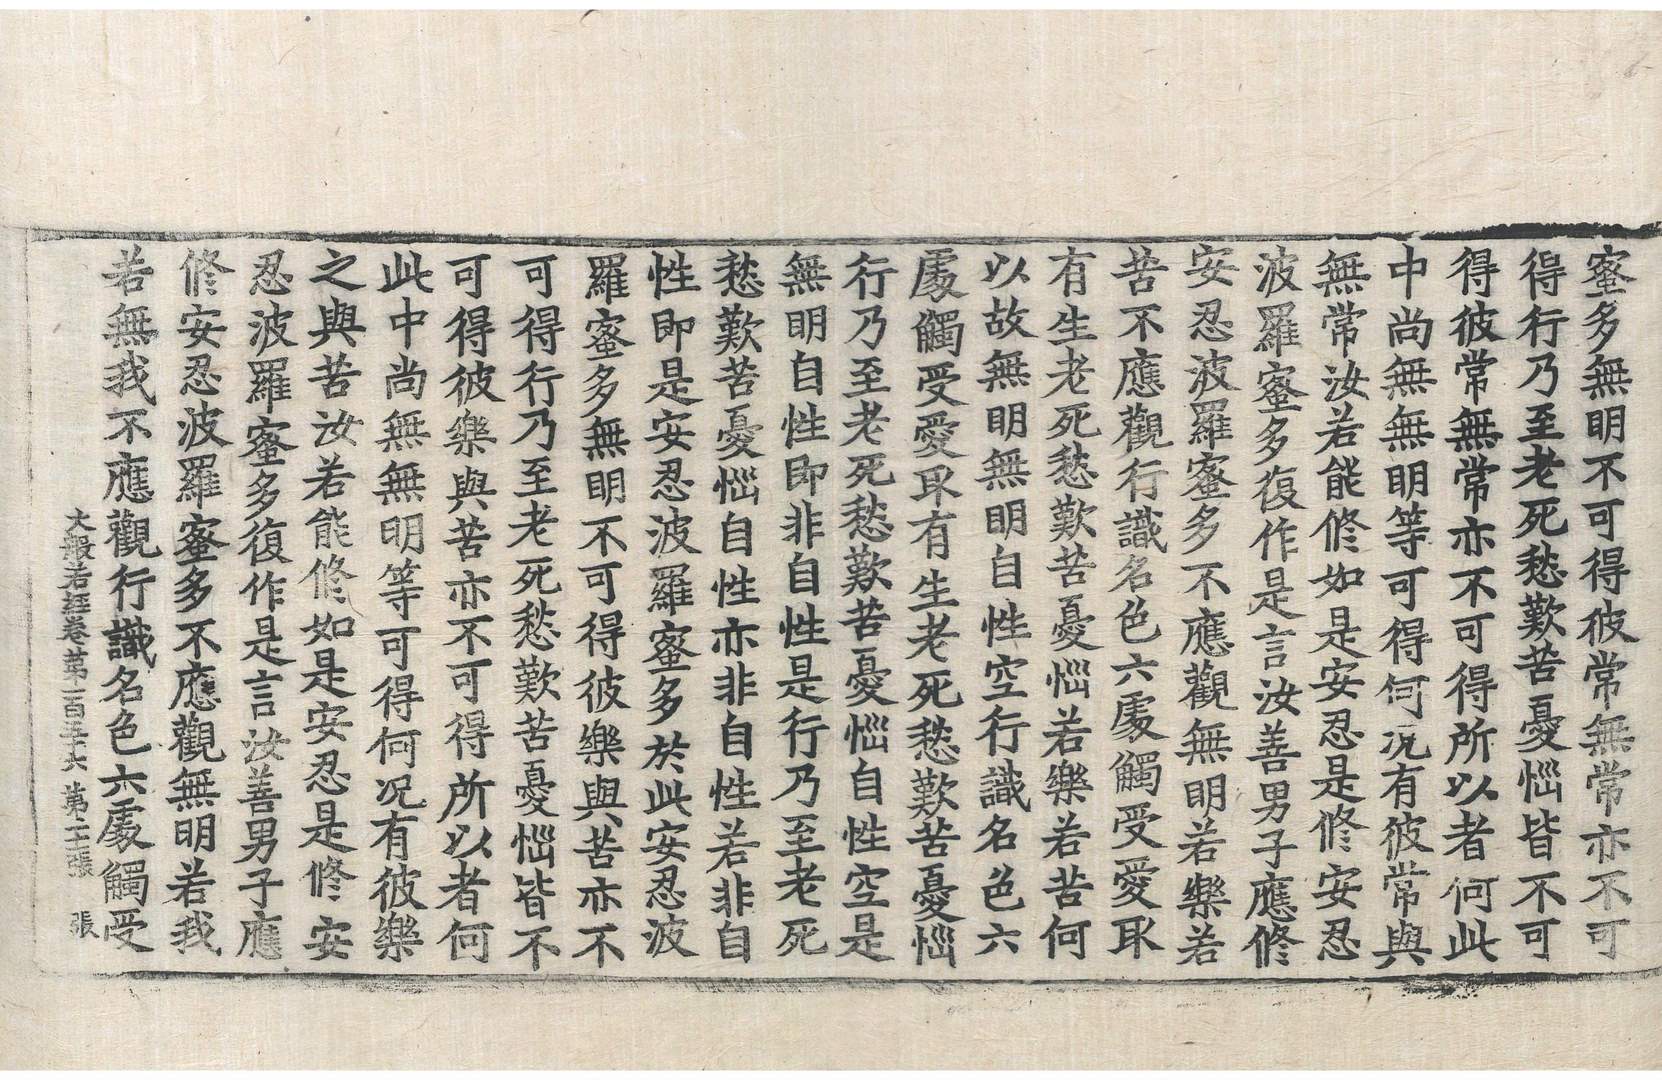 蜜多無明不可得彼常無常亦不可
得行乃至老死愁歎苦憂惱皆不可
得彼常無常亦不可得所以者何此
中尚無無明等可得何况有彼常與
無常汝若能修如是安忍是修安忍
波羅蜜多復作是言汝善男子應修
安忍波羅蜜多不應觀無明若樂若
苦不應觀行識名色六處觸受愛取
有生老死愁歎苦憂惱若樂若苦何
以故無明無明自性空行識名色六
處觸受愛取有生老死愁歎苦憂惱
行乃至老死愁歎苦憂惱自性空是
無明自性即非自性是行乃至老死
愁歎苦憂惱自性亦非自性若非自
性即是安忍波羅蜜多於此安忍波
羅蜜多無明不可得彼樂與苦亦不
可得行乃至老死愁歎苦憂惱皆不
可得彼樂與苦亦不可得所以者何
此中尚無無明等可得何况有彼樂
之與苦汝若能修如是安忍是修安
忍波羅蜜多復作是言汝善男子應
修安忍波羅蜜多不應觀無明若我
若無我不應觀行識名色六處觸受
大般若經卷第一百五十六 第二張 張